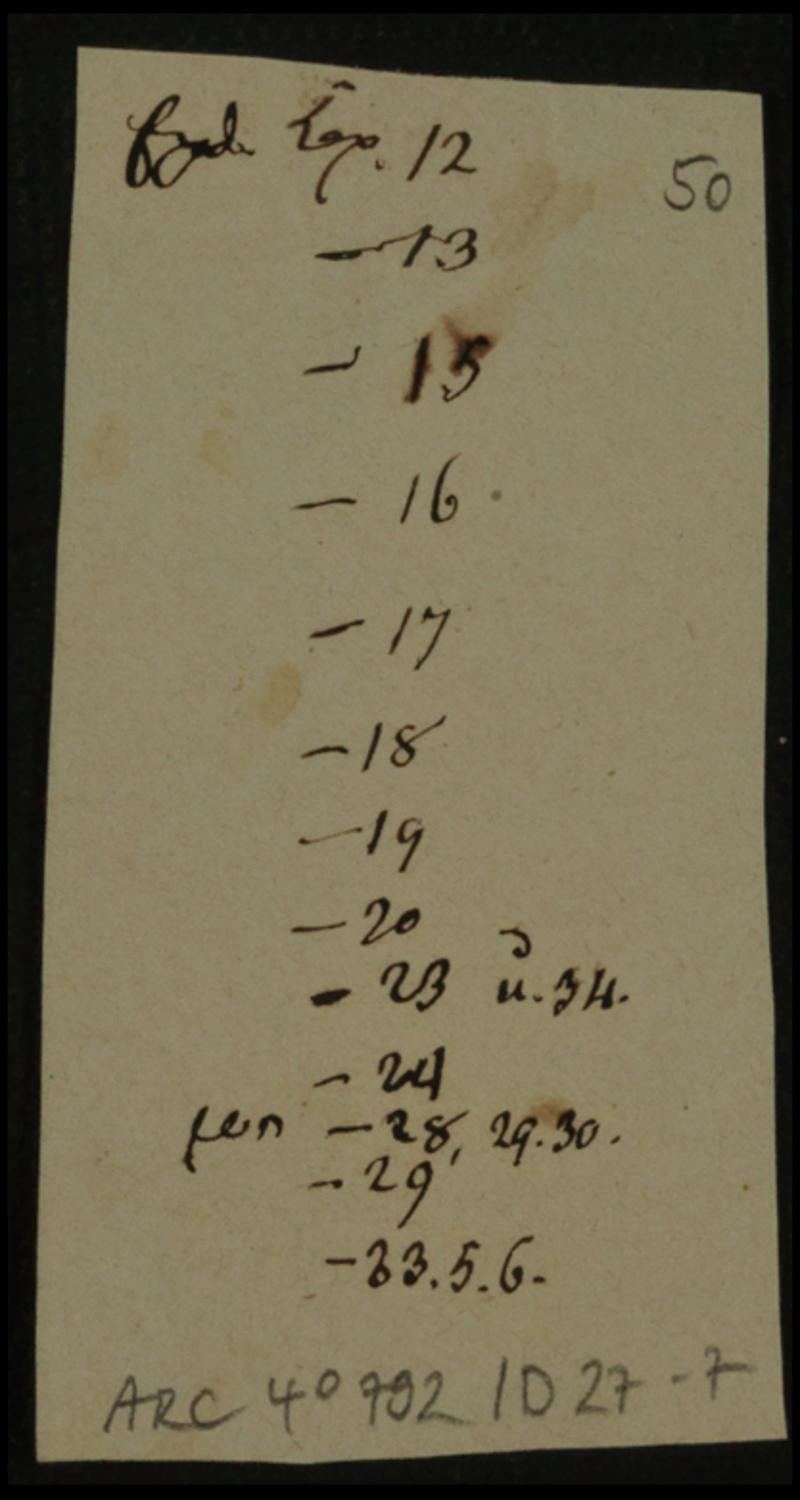 Cap. 12
50
— 13
— 15
— 16
— 17
— 18
— 19
— 20
— 23 u. 34.
— 24
— 28, 29. 30.
— 29
— 33. 5. 6.
ARC 4° 792 / D 27 - 7